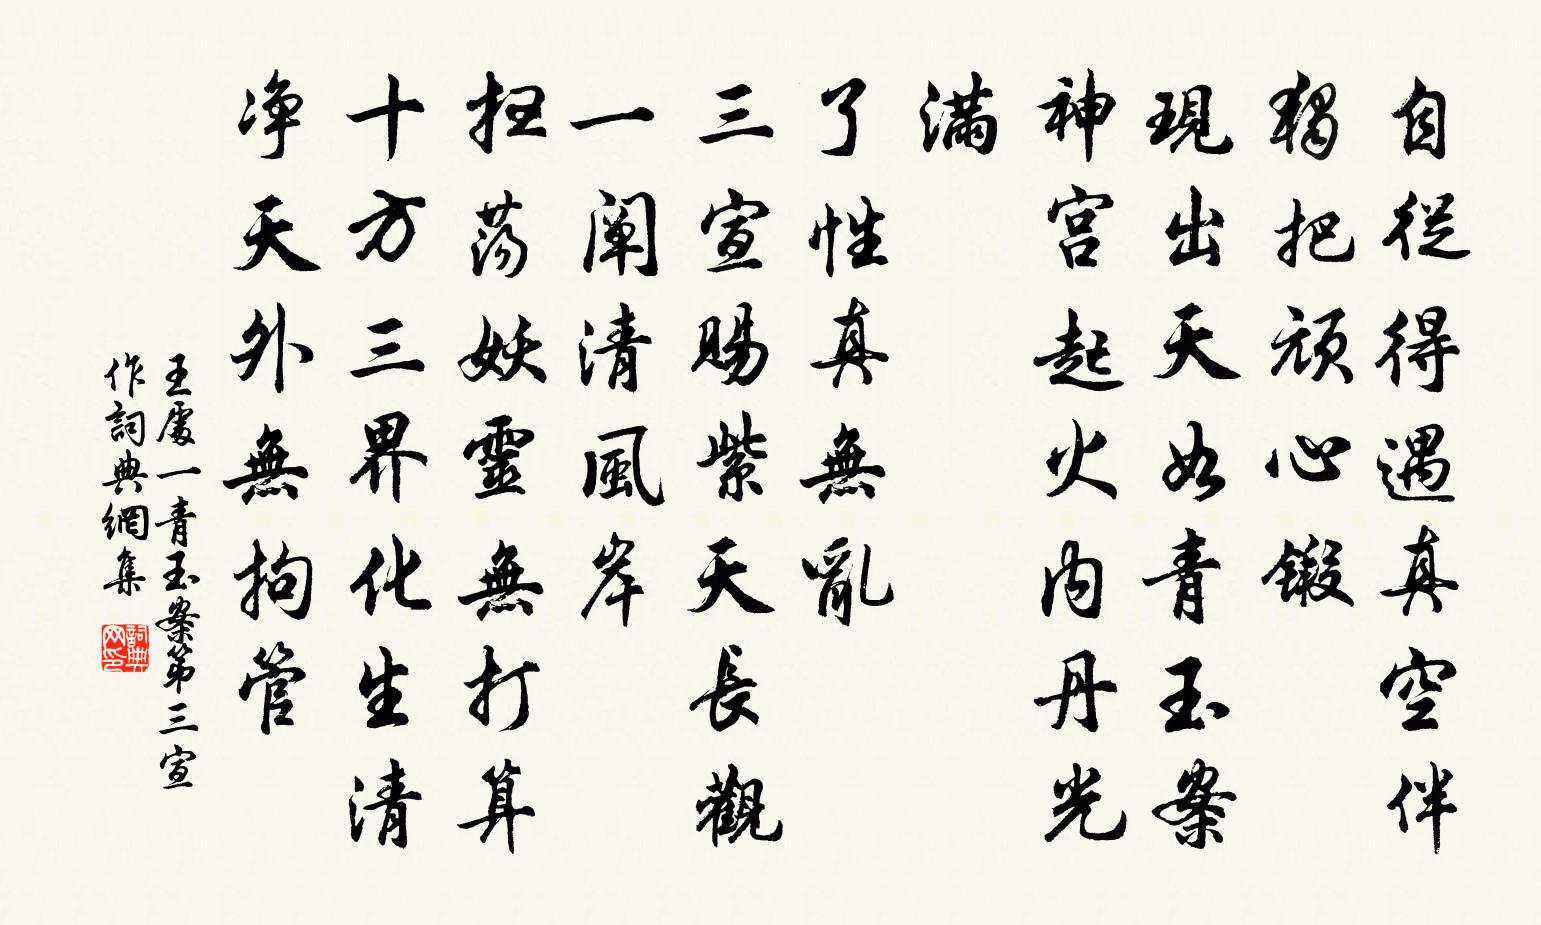 自從得遇真空伴
獨把頑心鍛
現出天如青玉案
神宮起火內丹光
滿
了性真無亂
三宣賜紫天長觀
一闡清風岸
掃蕩妖靈無打算
十方三界化生清
淨天外無拘管
王處一青玉案第三宣
作詞典網集
詞典网印